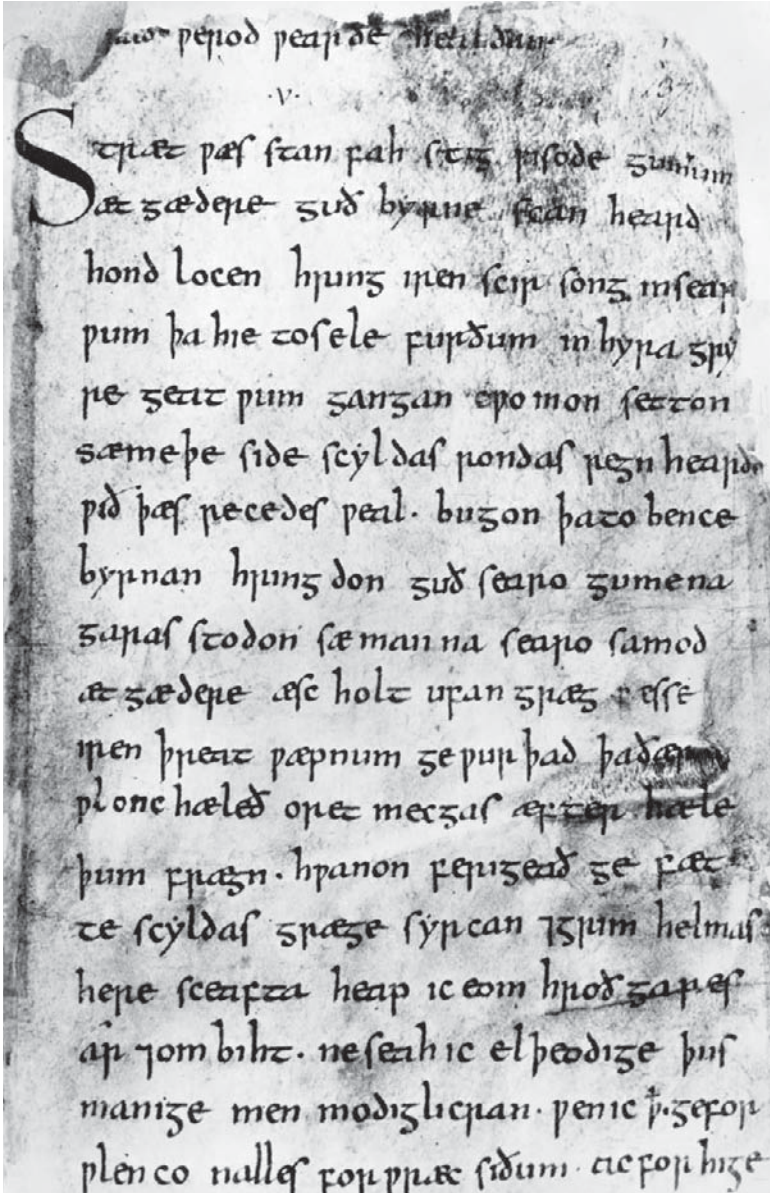 ƿerod ƿearde healdan
.v.
Stræt ƿæs stan fah stig ƿisode gumum
æt gædere guð byrne scan heard
hond locen hring iren scir song insear
ƿum þa hie tosele furðum in hyra gry
re geat ƿum gangan cƿomon setton
sæmeþe side scyldas rondas regn hearde
ƿið þæs recedes ƿeal · bugon þato bence
byrnan hring don guð searo gumena
garas stodon sæ man na searo samod
æt gædere æsc holt ufan græg ƿæs se
iren þreat ƿæpnum ge ƿur þad þa ðær
ƿlonc hæleð oret mecgas æfter hæle
þum frægn · hƿanon ferigeað ge fæt
te scyldas græge syrcan ⁊grim helmas
here sceafta heap ic eom hroð gares
ar ⁊om biht · ne seah ic el þeodige þus
manige men modiglicran · ƿen ic ꝥ · ge for
ƿlen co nalles for ƿræc siðum · ac for hige